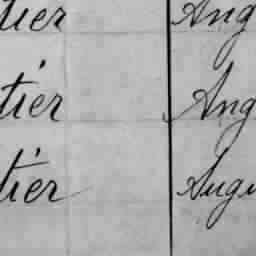 tier Ang
tier Ang
tier Augu